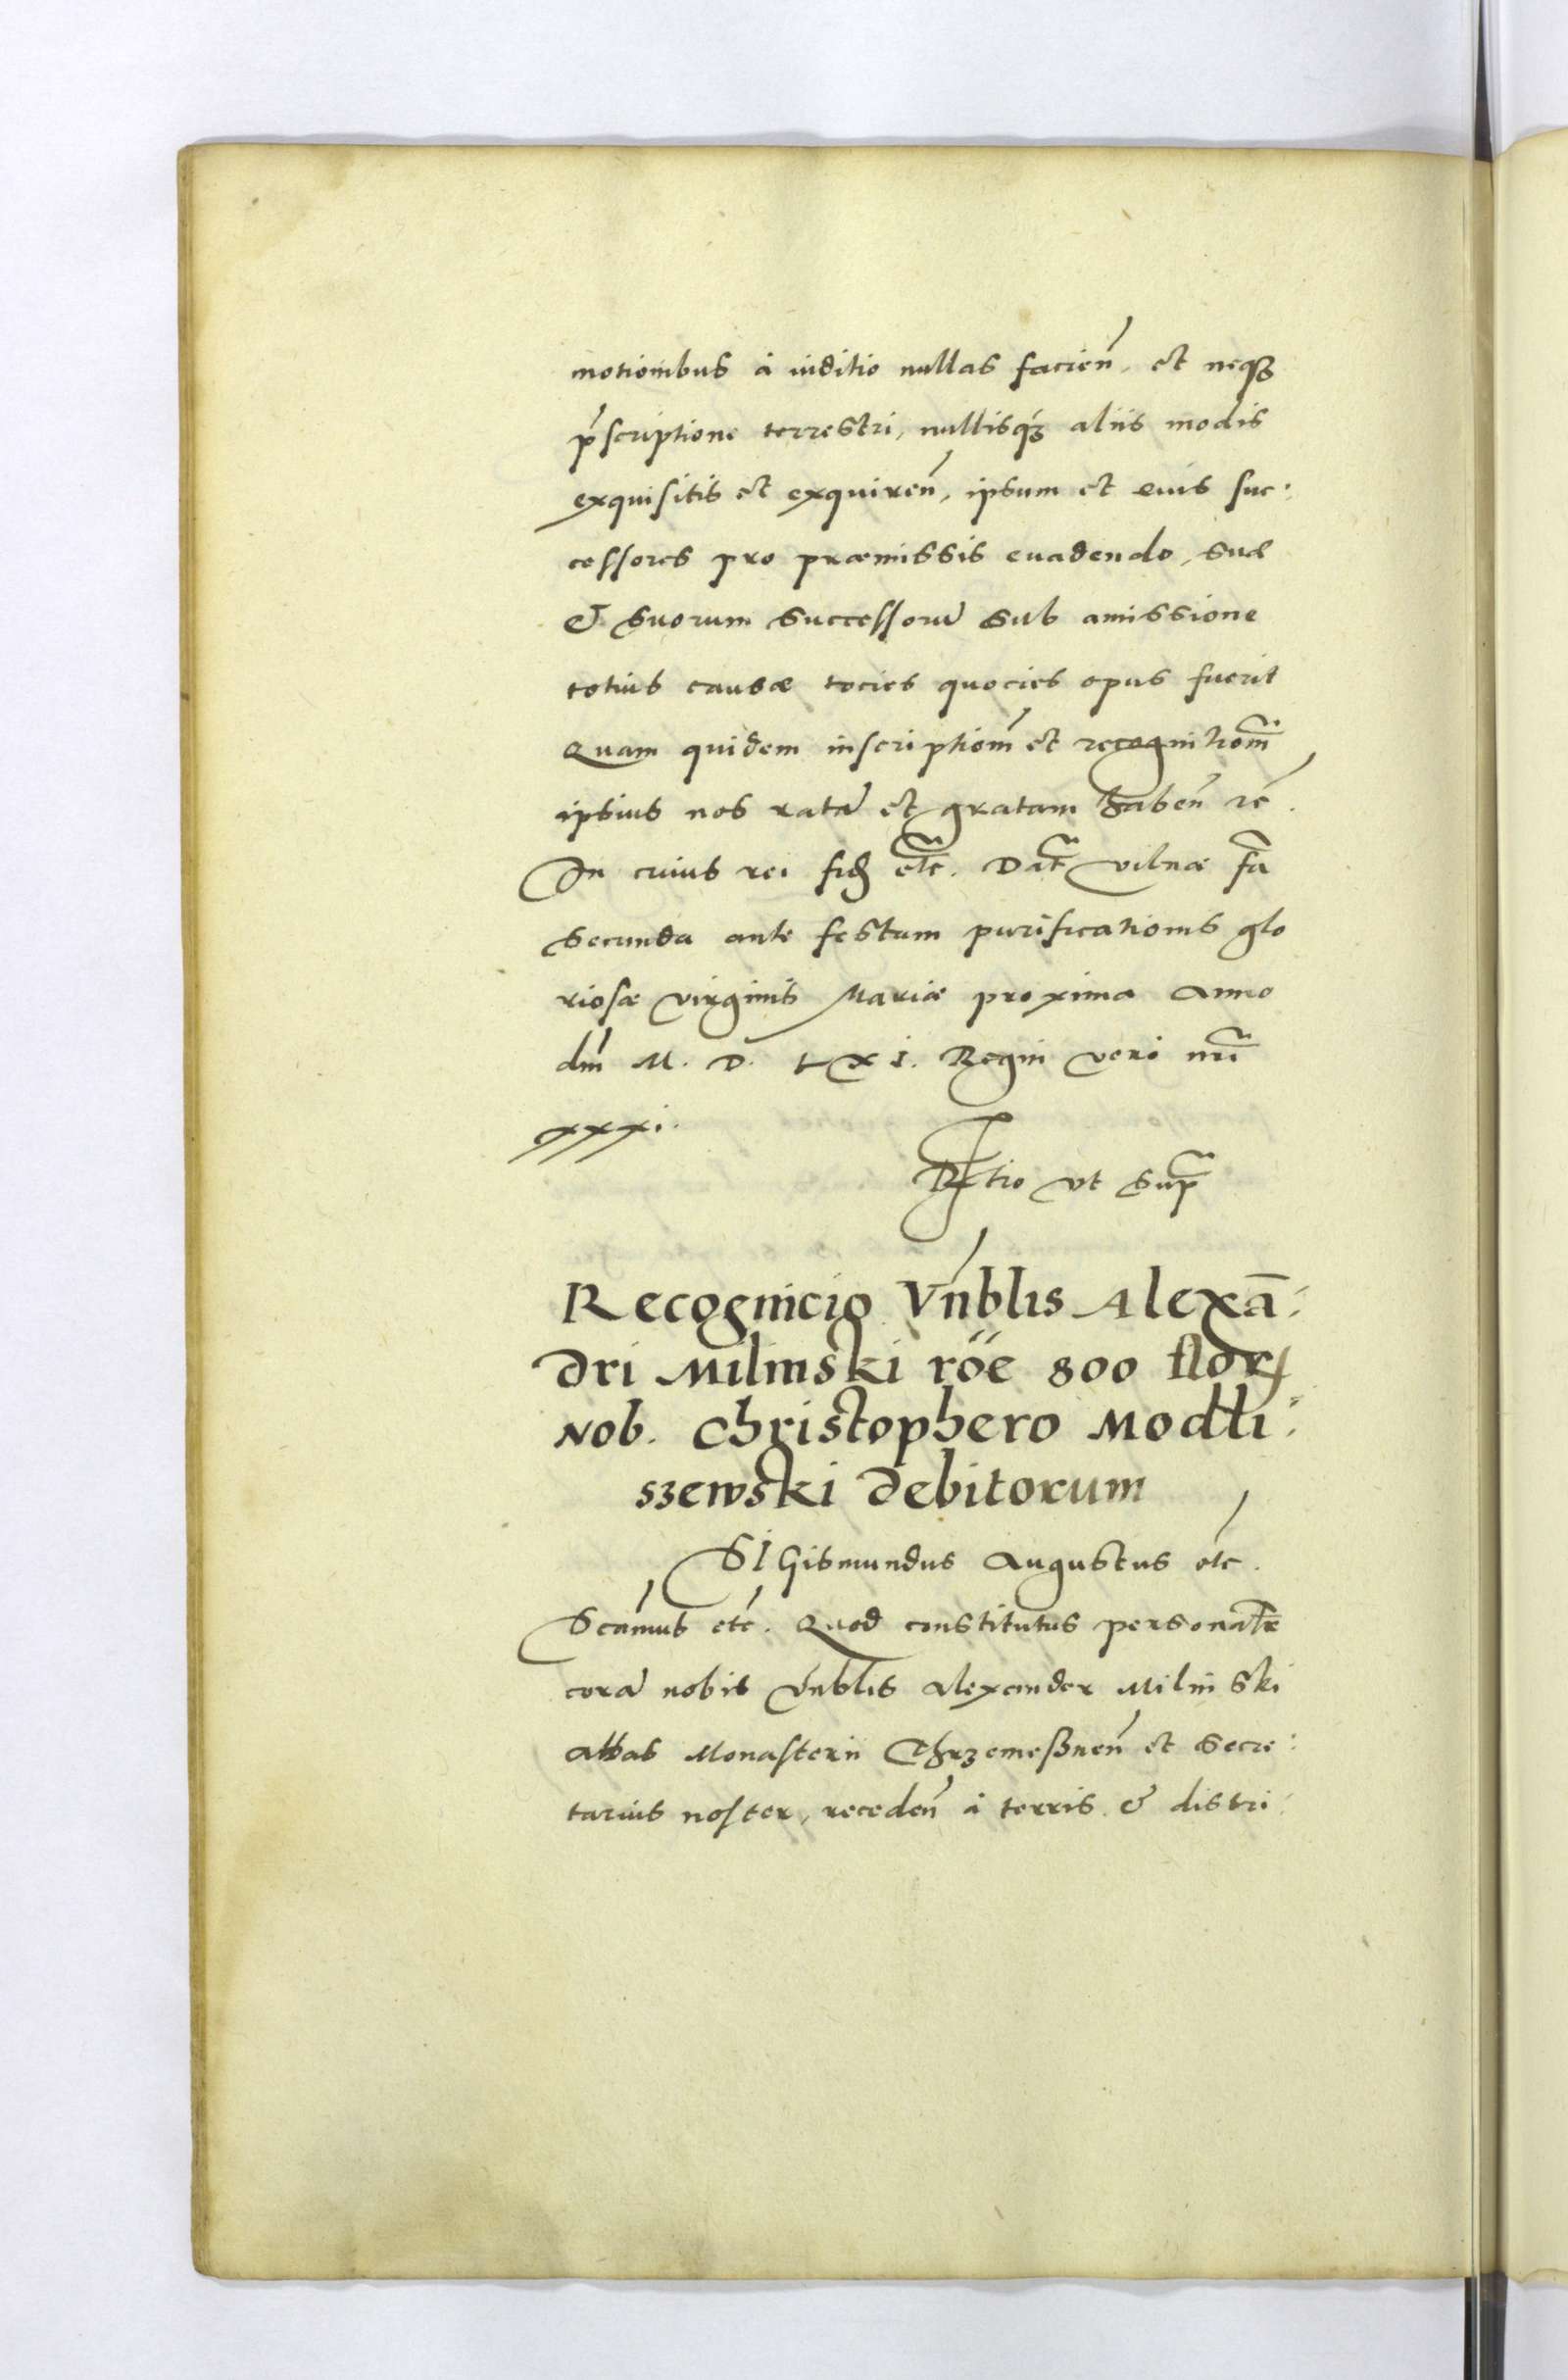 motionibus à iuditio nullas facień, et neqȝ
p̄scriptione terrestri, nullisqȝ aliis modis
exquisitis et exquireń, ipsum et eius suc:
cessores pro præmissis euadendo, sub
& suorum successorū sub amissione
totius causæ tocies quocies opus fuerit
Quam quidem inscriptiom̄ et recognitiom̄
ipsius nos ratā et gratam habeń rē.
In cuius rei fid etc̃. Dat̃ vilnæ fã
secunda ante festum purificationis glo
riosæ virginis Mariæ proxima Anno
dm̄ M. D. LXI. Regni vero nr̃i
xxxi.
Rltio vt sup̃
Recognicio Vn̄blis Alexā:
dri Milinski rōe 800 flor
Nob. Christophero Modli:
szewski debitorum
SIGismundus Augustus etc̄.
Scāmus etc̄. Quod constitutus personalr̃
corā nobis Vn̄blis Alexander Milinski
Abbas Monasterii Chrzemeßneń et Secre:
tarius noster, recedeń à terris & distri: